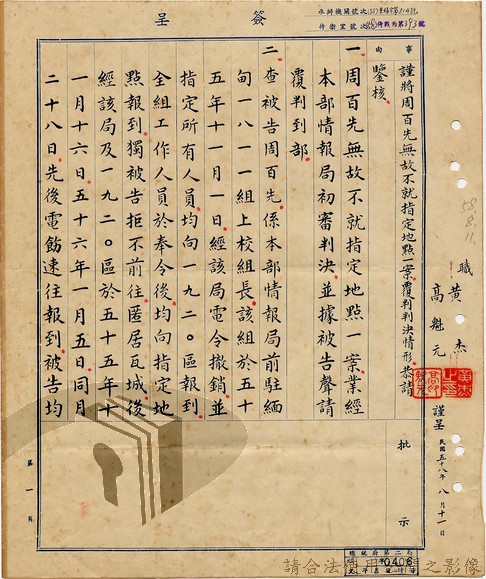 簽呈
承辦機關號次
侍衛室號次
事由
謹將周百先無故不就指定地點一案覆判判決情形恭請
鑒核
一周百先無故不就指定地點一案業經
本部情報局初審判決並據被告聲請
覆判到部
二查被告周百先係本部情報局前駐緬
甸一八一一組上校組長該組於五十
五年十一月一日經該局電令撤銷並
指定所有人員均向一九二○區報到
全組工作人員於奉令後均向指定地
點報到獨被告拒不前往匿居瓦城後
經該局及一九二○區於五十五年十
一月十六日五十六年一月五日同月
二十八日先後電飭速往報到被告均
58.8.11.
職黃杰
高魁元
謹呈
民國五十八年八月十一日
批示
第一頁
總統府第二局
0406